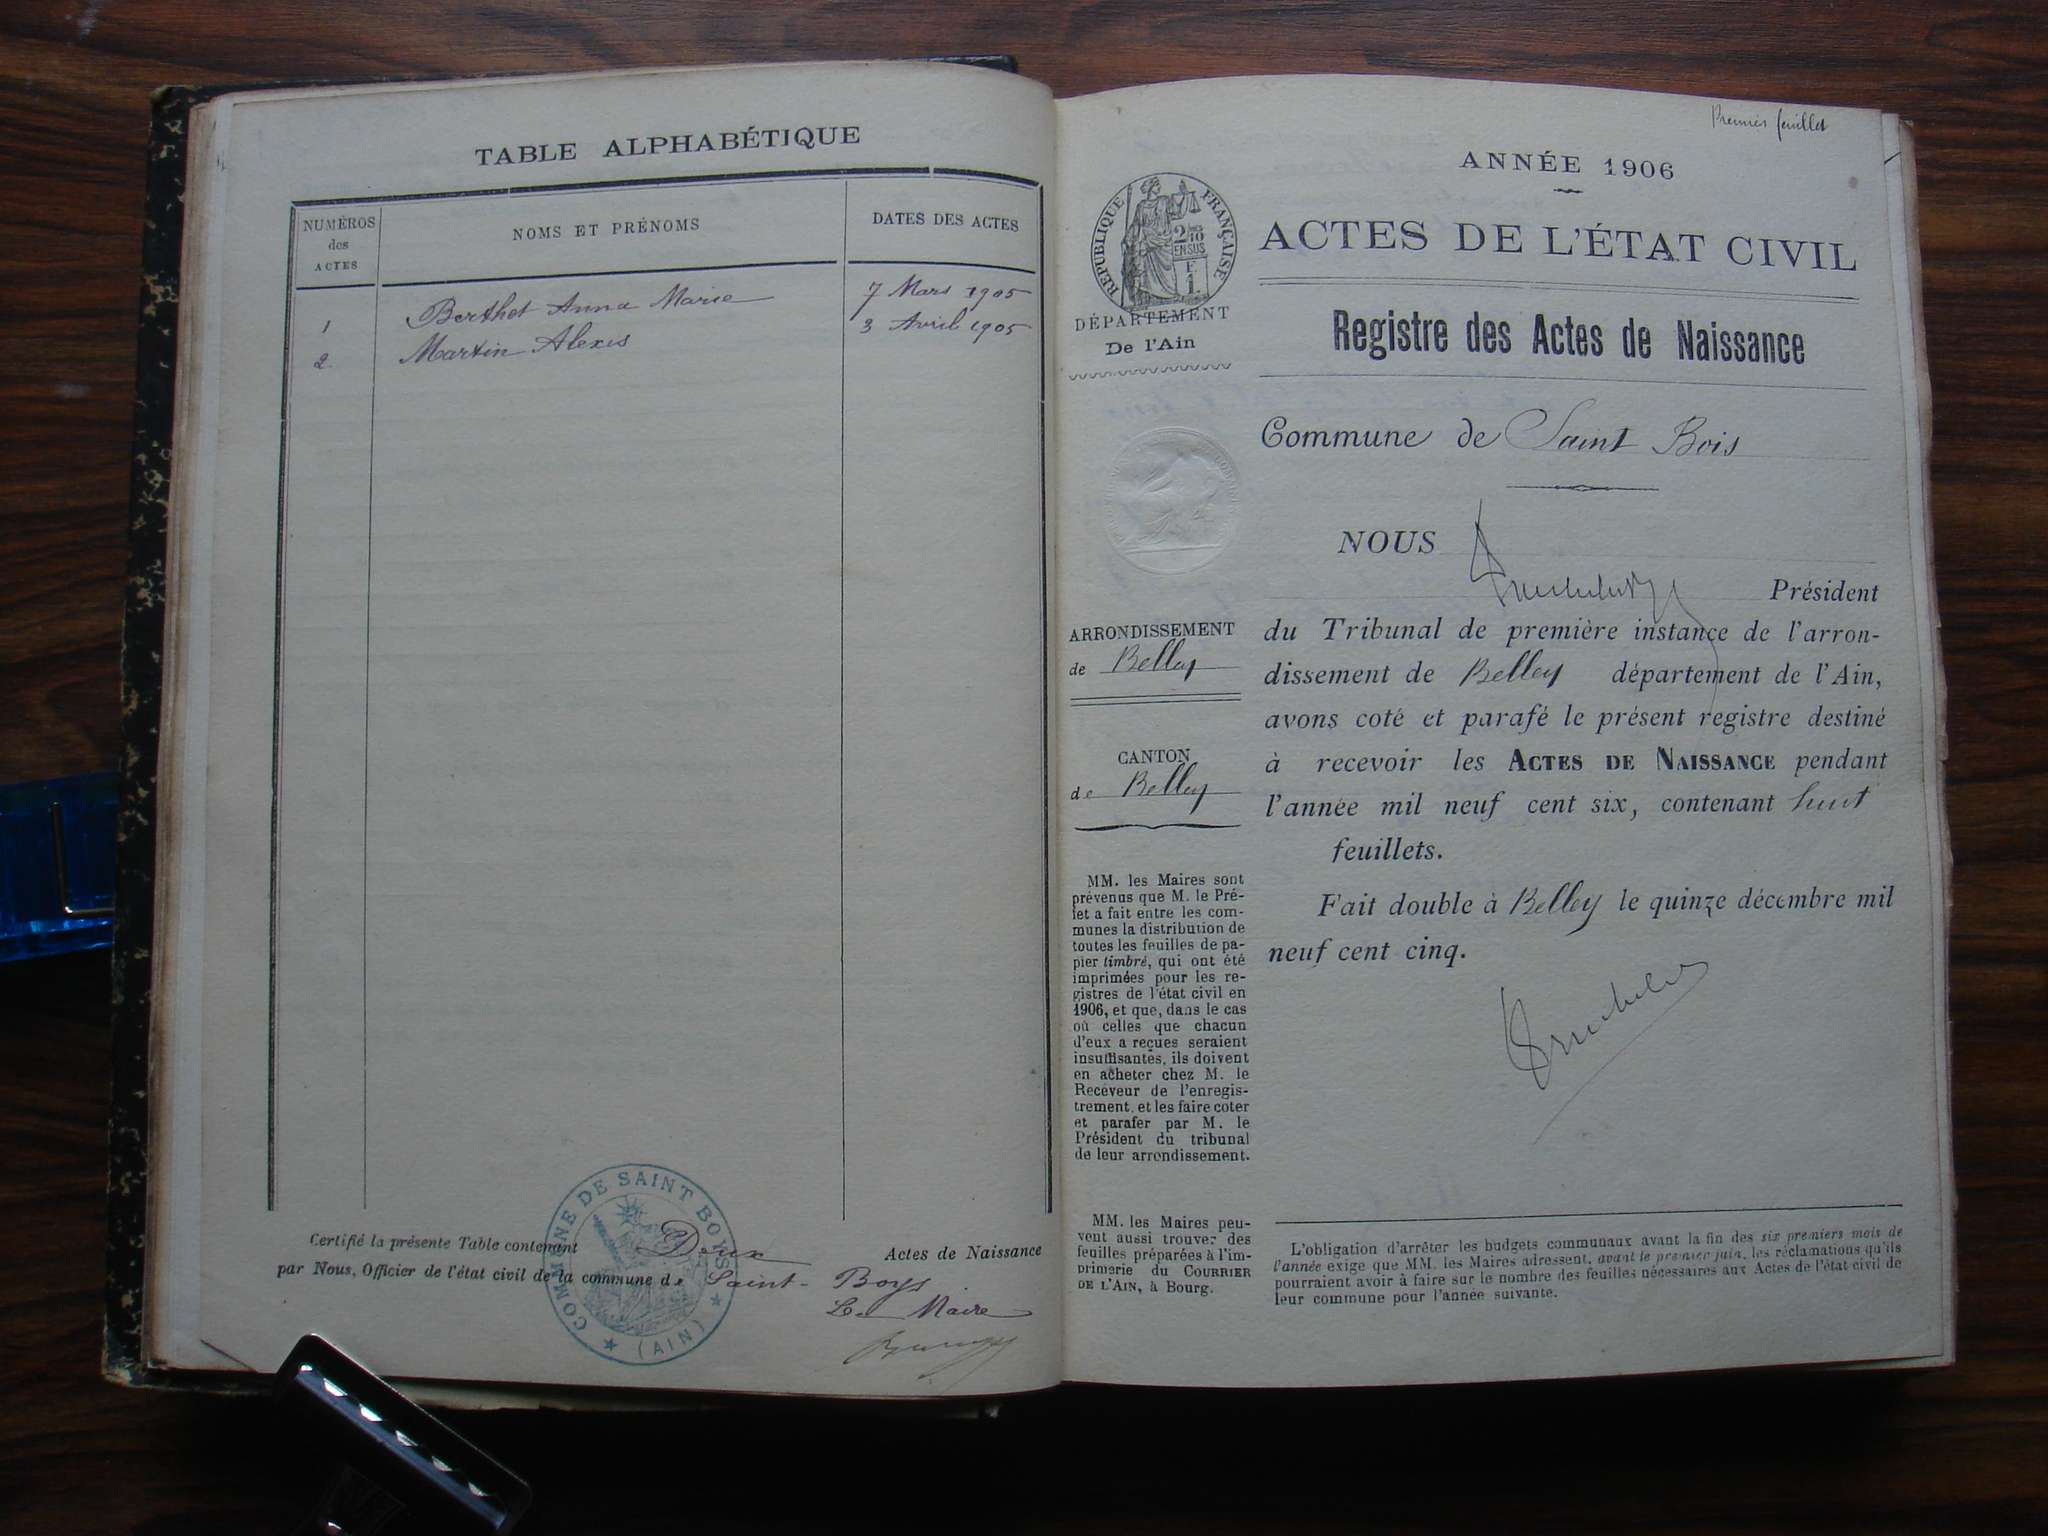 TABLE ALPHABÉTIQUE
NUMÉROS
des
ACTES
NOMS ET PRÉNOMS
DATES DES ACTES
1 Berthet Anna Marie 7 Mars 1905
2 Martin Alexis 3 Avril 1905
Certifié la présente Table contenant Deux Actes de Naissance
par Nous, Officier de l'état civil de la commune de Saint-Boys
Le Maire
COMMUNE DE SAINT BOYS
(AIN)
Premier feuillet
ANNÉE 1906
RÉPUBLIQUE FRANÇAISE
2/10
EN SUS
F
1
DÉPARTEMENT
De l'Ain
ACTES DE L'ÉTAT CIVIL
Registre des Actes de Naissance
Commune de Saint Bois
NOUS
Président
ARRONDISSEMENT
de Belley
CANTON
de Belley
du Tribunal de première instance de l'arron-
dissement de Belley département de l'Ain,
avons coté et parafé le présent registre destiné
à recevoir les ACTES DE NAISSANCE pendant
l'année mil neuf cent six, contenant huit
feuillets.
Fait double à Belley le quinze décembre mil
neuf cent cinq.
MM. les Maires sont
prévenus que M. le Pré-
fet a fait entre les com-
munes la distribution de
toutes les feuilles de pa-
pier timbré, qui ont été
imprimées pour les re-
gistres de l'état civil en
1906, et que, dans le cas
où celles que chacun
d'eux a reçues seraient
insuffisantes, ils doivent
en acheter chez M. le
Receveur de l'enregis-
trement, et les faire coter
et parafer par M. le
Président du tribunal
de leur arrondissement.
MM. les Maires peu-
vent aussi trouver des
feuilles préparées à l'im-
primerie du COURRIER
DE L'AIN, à Bourg.
L'obligation d'arrêter les budgets communaux avant la fin des six premiers mois de
l'année exige que MM. les Maires adressent, avant le premier juin, les réclamations qu'ils
pourraient avoir à faire sur le nombre des feuilles nécessaires aux Actes de l'état civil de
leur commune pour l'année suivante.